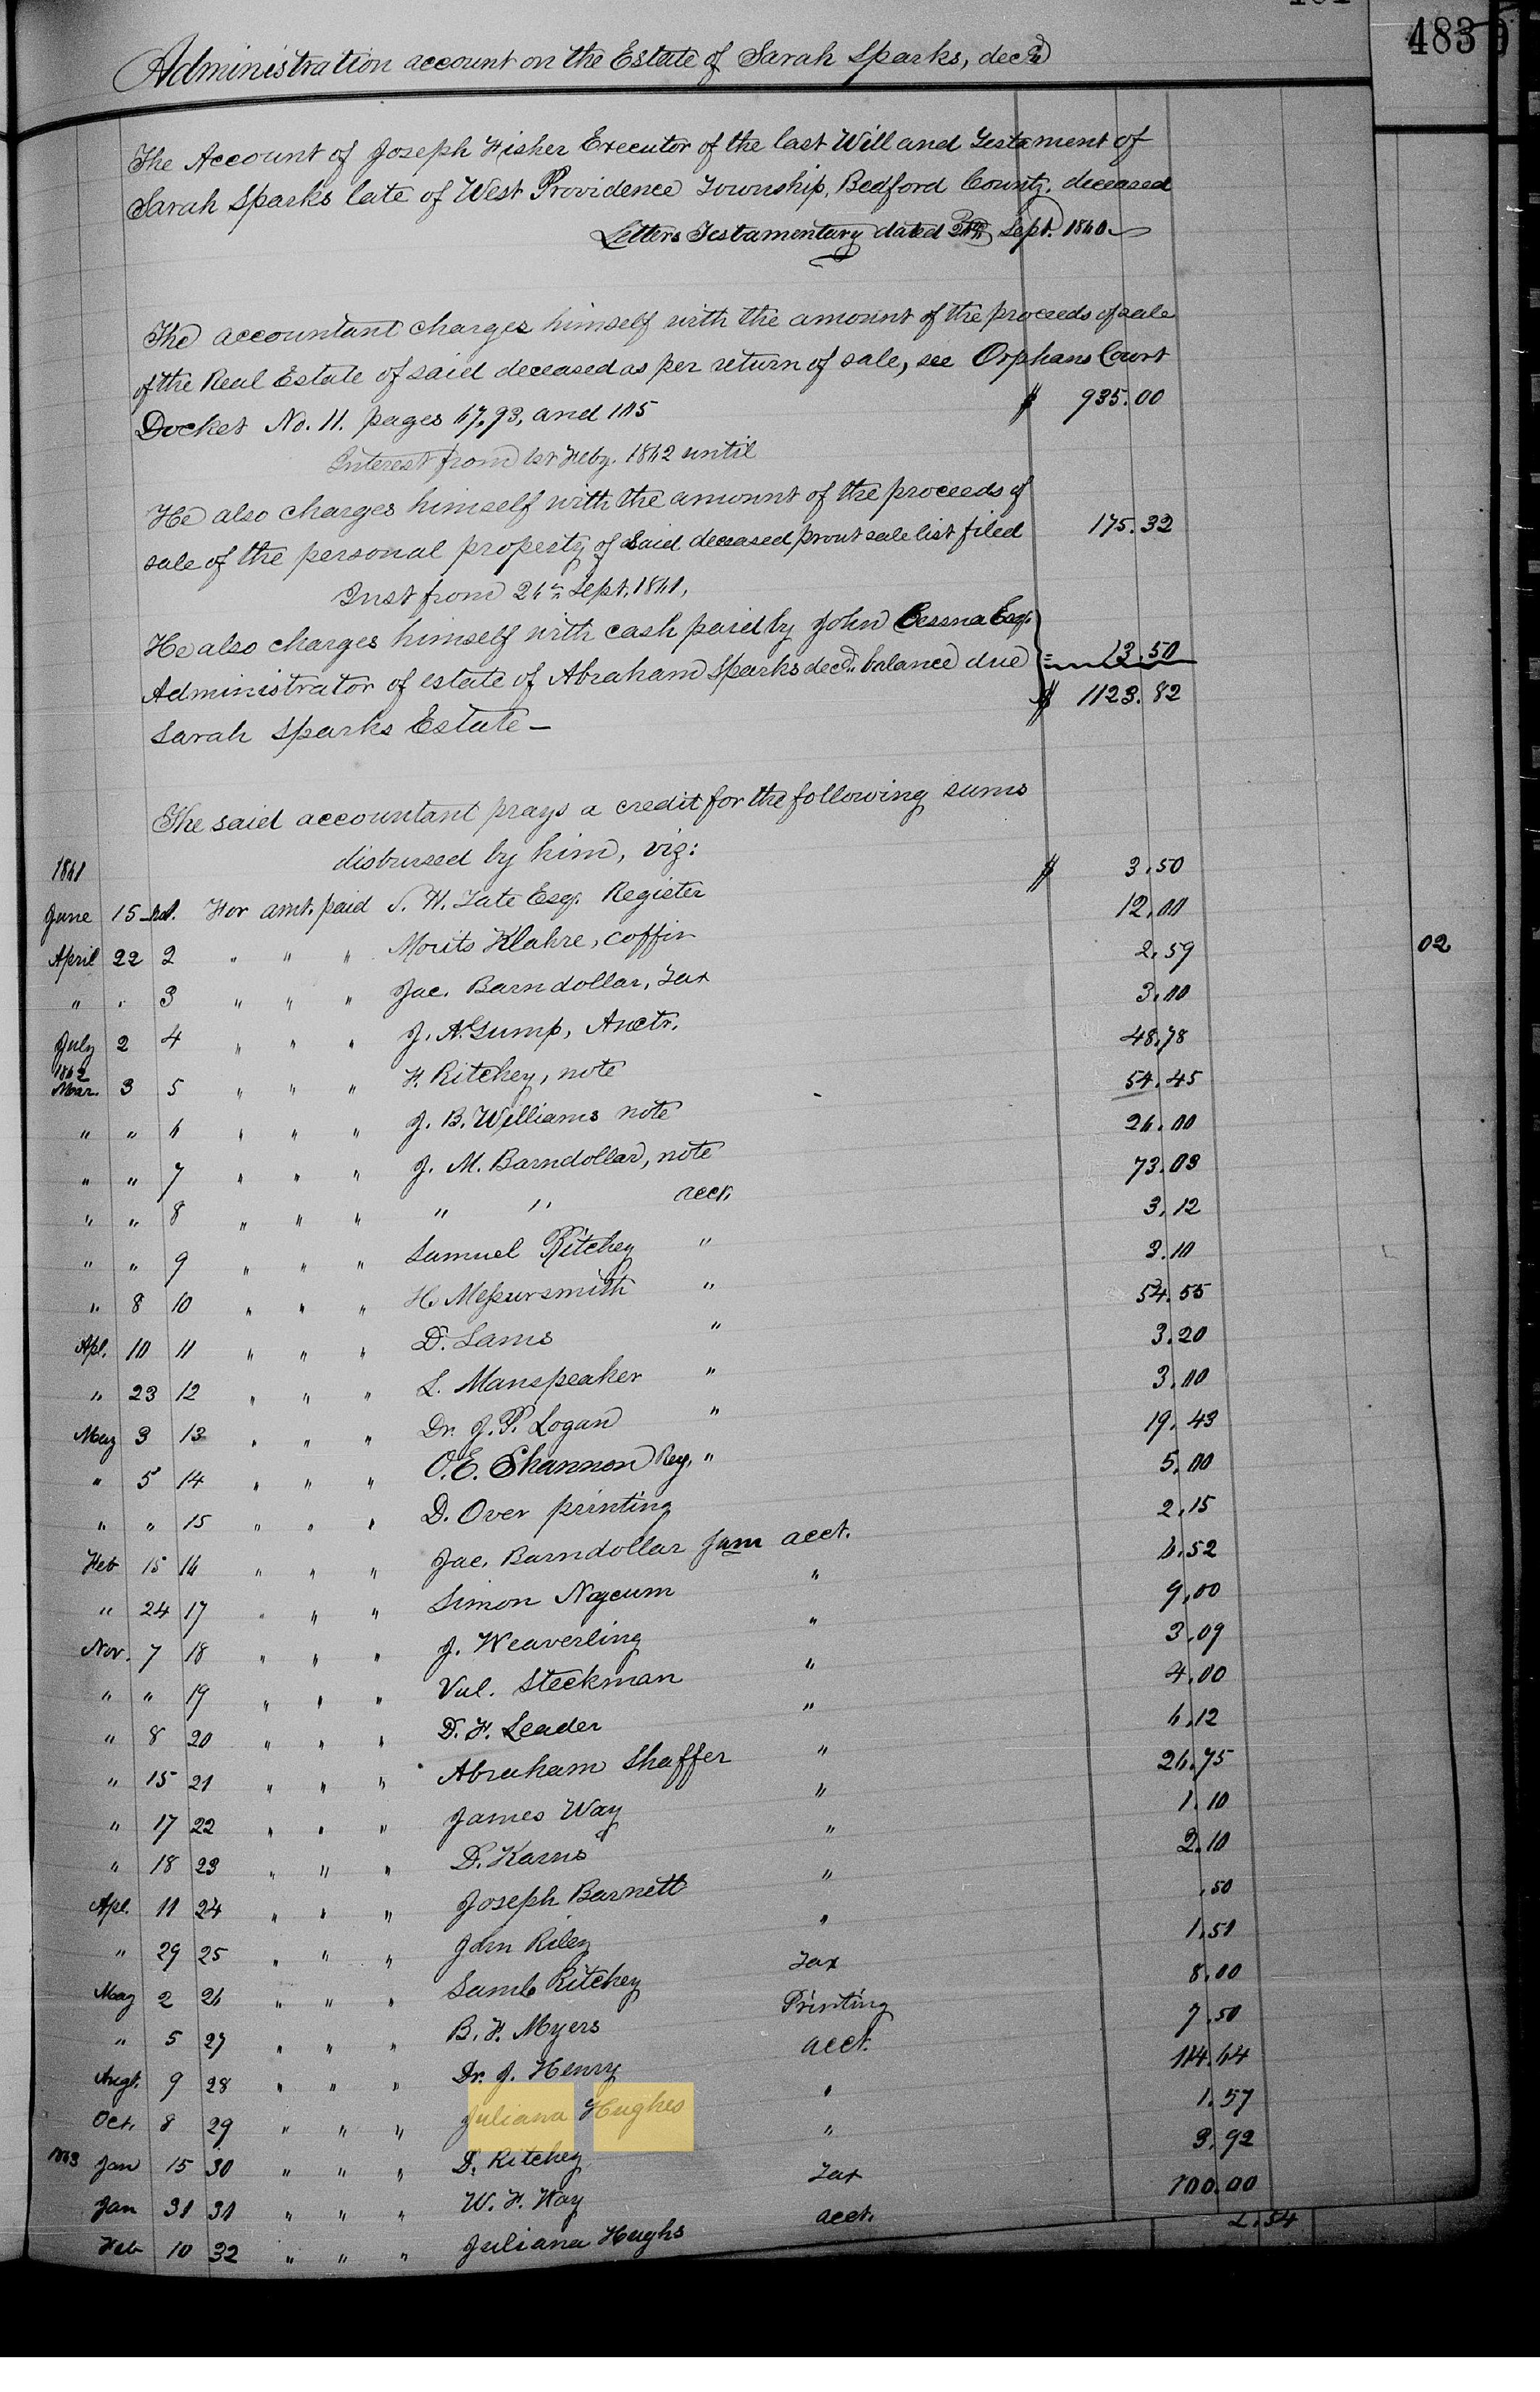 483
Administration account on the Estate of Sarah Sparks, decd
The Account of Joseph Fisher Executor of the last Will and Testament of
Sarah Sparks late of West Providence Township, Bedford County, deceased
Letters Testamentary dated Sept. 1860
The accountant charges himself with the amount of the proceeds of sale
of the Real Estate of said deceased as per return of sale, see Orphans Court
Docket No. 11. pages 67, 93, and 105 $ 935.00
Interest from 1st Feby. 1862 until
He also charges himself with the amount of the proceeds of
sale of the personal property of said deceased prout sale list filed 175.32
Inst from 26th Sept, 1861,
He also charges himself with cash paid by John Cessna Esq.
Administrator of estate of Abraham Sparks decd. balance due 13.50
Sarah Sparks Estate — $ 1123.82
The said accountant prays a credit for the following sums
disbursed by him, viz:
1861
June 15 No1. For amt. paid S. H. Tate Esq. Register $ 3.50
April 22 2 " " " Morits Klahre, coffin 12.00
" " 3 " " " Jac. Barndollar, Tax 2.59
02
July 2 4 " " " J. A. Gump, Auctr. 3.00
1862
Mar. 3 5 " " " F. Ritchey, note 48.78
" " 6 " " " J. B. Williams note 54.45
" " 7 " " " J. M. Barndollar, note 26.00
" " 8 " " " " " acct. 73.03
" " 9 " " " Samuel Ritchey " 3.12
" 8 10 " " " H. Messersmith " 3.10
Apl. 10 11 " " " D. Sams " 54.55
" 23 12 " " " L. Manspeaker " 3.20
May 3 13 " " " Dr. J. P. Logan " 3.00
" 5 14 " " " O. E. Shannon Reg. " 19.43
" " 15 " " " D. Over printing 5.00
Feb 15 16 " " " Jac. Barndollar acct. 2.15
" 24 17 " " " Simon Nycum " 6.52
Nov. 7 18 " " " J. Weaverling " 9.00
" " 19 " " " Val. Steckman " 3.09
" 8 20 " " " D. F. Leader " 4.00
" 15 21 " " " Abraham Shaffer " 6.12
" 17 22 " " " James Way " 26.75
" 18 23 " " " D. Karns " 1.10
Apl. 11 24 " " " Joseph Barnett " 2.10
" 29 25 " " " John Riley " .50
May 2 26 " " " Saml. Ritchey Tax 1.51
" 5 27 " " " B. F. Myers Printing 8.00
Augt. 9 28 " " " Dr. J. Henry acct. 7.50
Oct. 8 29 " " " Juliana Hughes " 114.64
1863 Jan 15 30 " " " D. Ritchey " 1.57
Jan 31 31 " " " W. F. Way Tax 3.92
Feb 10 32 " " " Juliana Hughs acct. 100.00
2.54